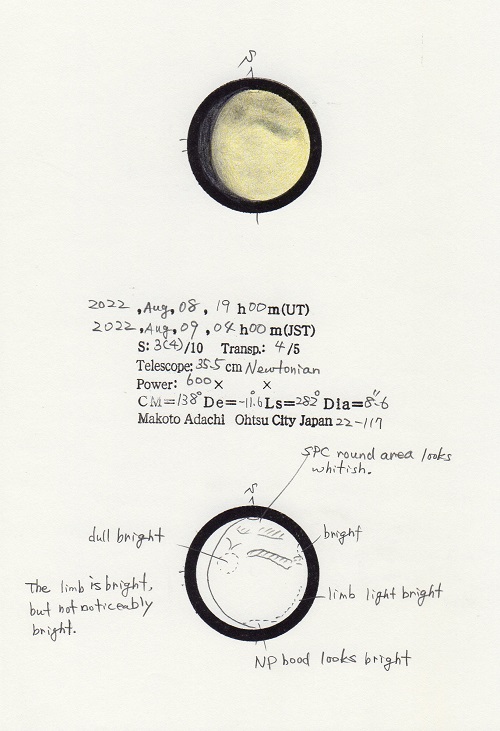 S
2022, Aug, 08, 19 h00m(UT)
2022, Aug, 09, 04 h00m(JST)
S: 3(4)/10 Transp.: 4/5
Telescope: 35.5 cm Newtonian
Power: 600× ×
CM=138° De=-11.6° Ls=282° Dia=8".6
Makoto Adachi Ohtsu City Japan 22-117
SPC round area looks
whitish.
S
dull bright
bright
The limb is bright,
but not noticeably
bright.
limb light bright
NP hood looks bright